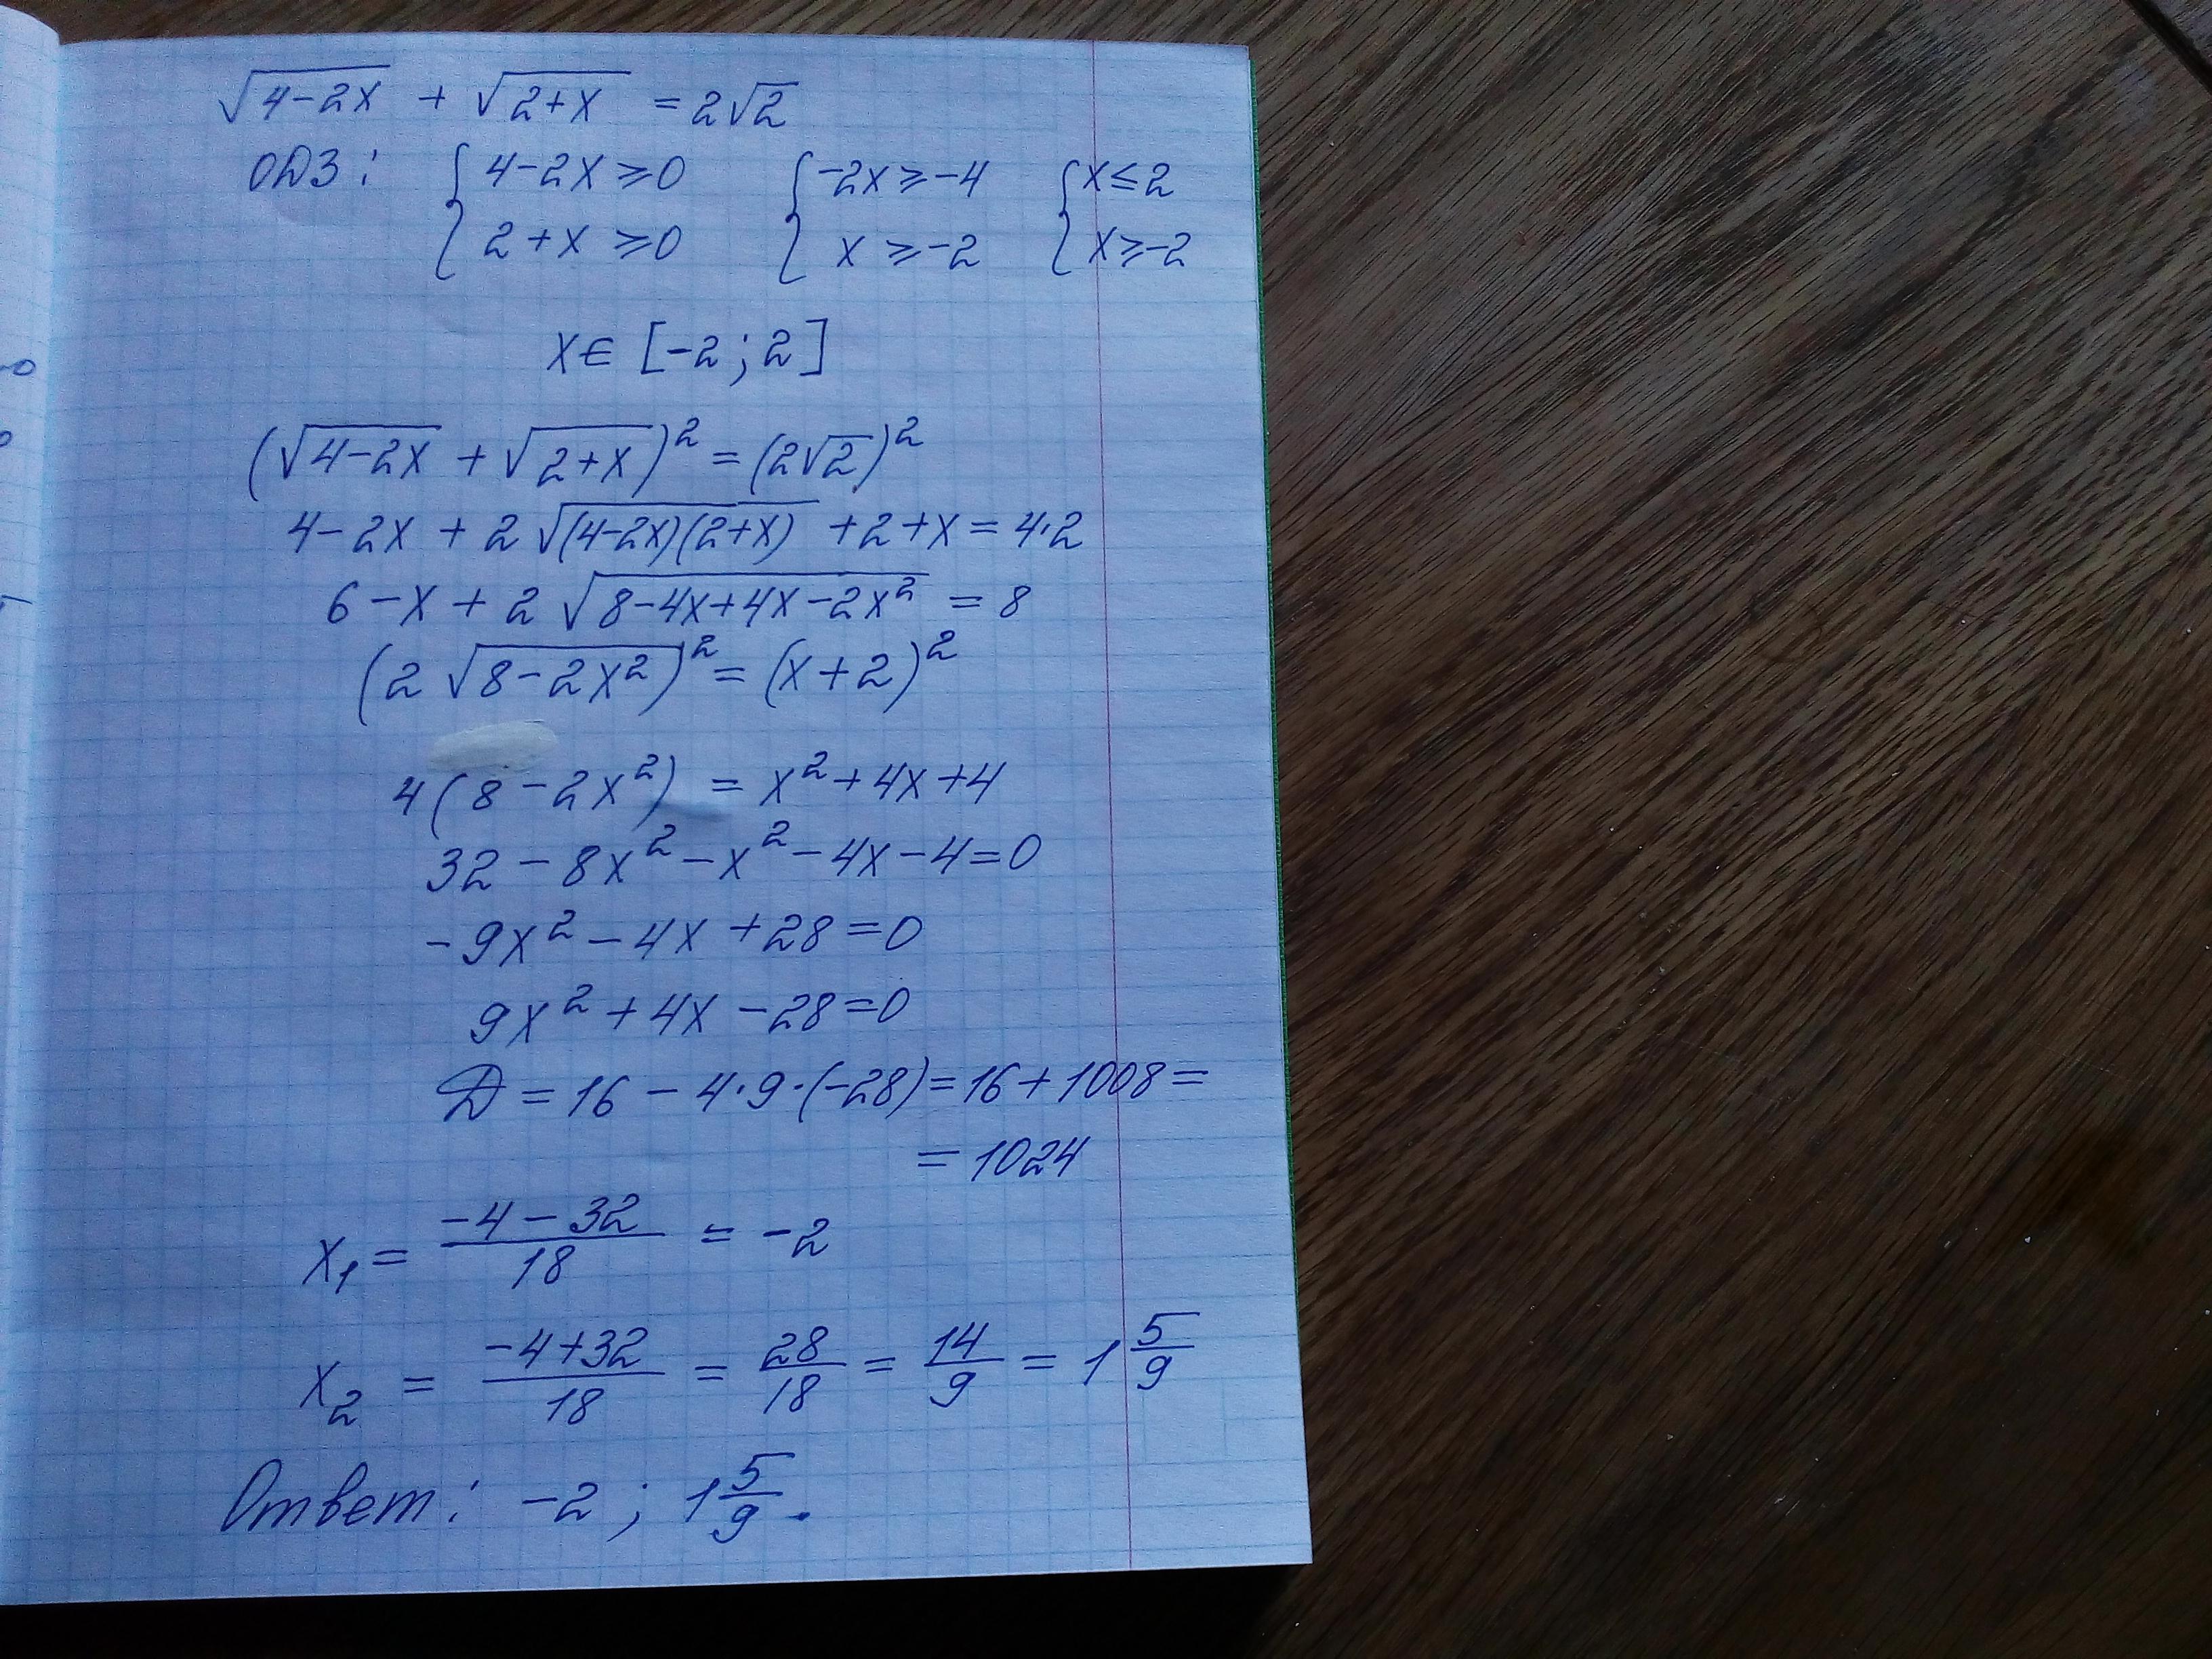 √(4-2x) + √(2+x) = 2√2
ОДЗ: { 4-2x ≥ 0 { -2x ≥ -4 { x ≤ 2
2+x ≥ 0 x ≥ -2 x ≥ -2
x ∈ [-2; 2]
(√(4-2x) + √(2+x))² = (2√2)²
4-2x + 2√((4-2x)(2+x)) + 2+x = 4·2
6-x + 2√(8-4x+4x-2x²) = 8
(2√(8-2x²))² = (x+2)²
4(8-2x²) = x²+4x+4
32-8x²-x²-4x-4=0
-9x²-4x+28=0
9x²+4x-28=0
Д = 16-4·9·(-28) = 16+1008 =
= 1024
x₁ = (-4-32)/18 = -2
x₂ = (-4+32)/18 = 28/18 = 14/9 = 1 5/9
Ответ: -2; 1 5/9.